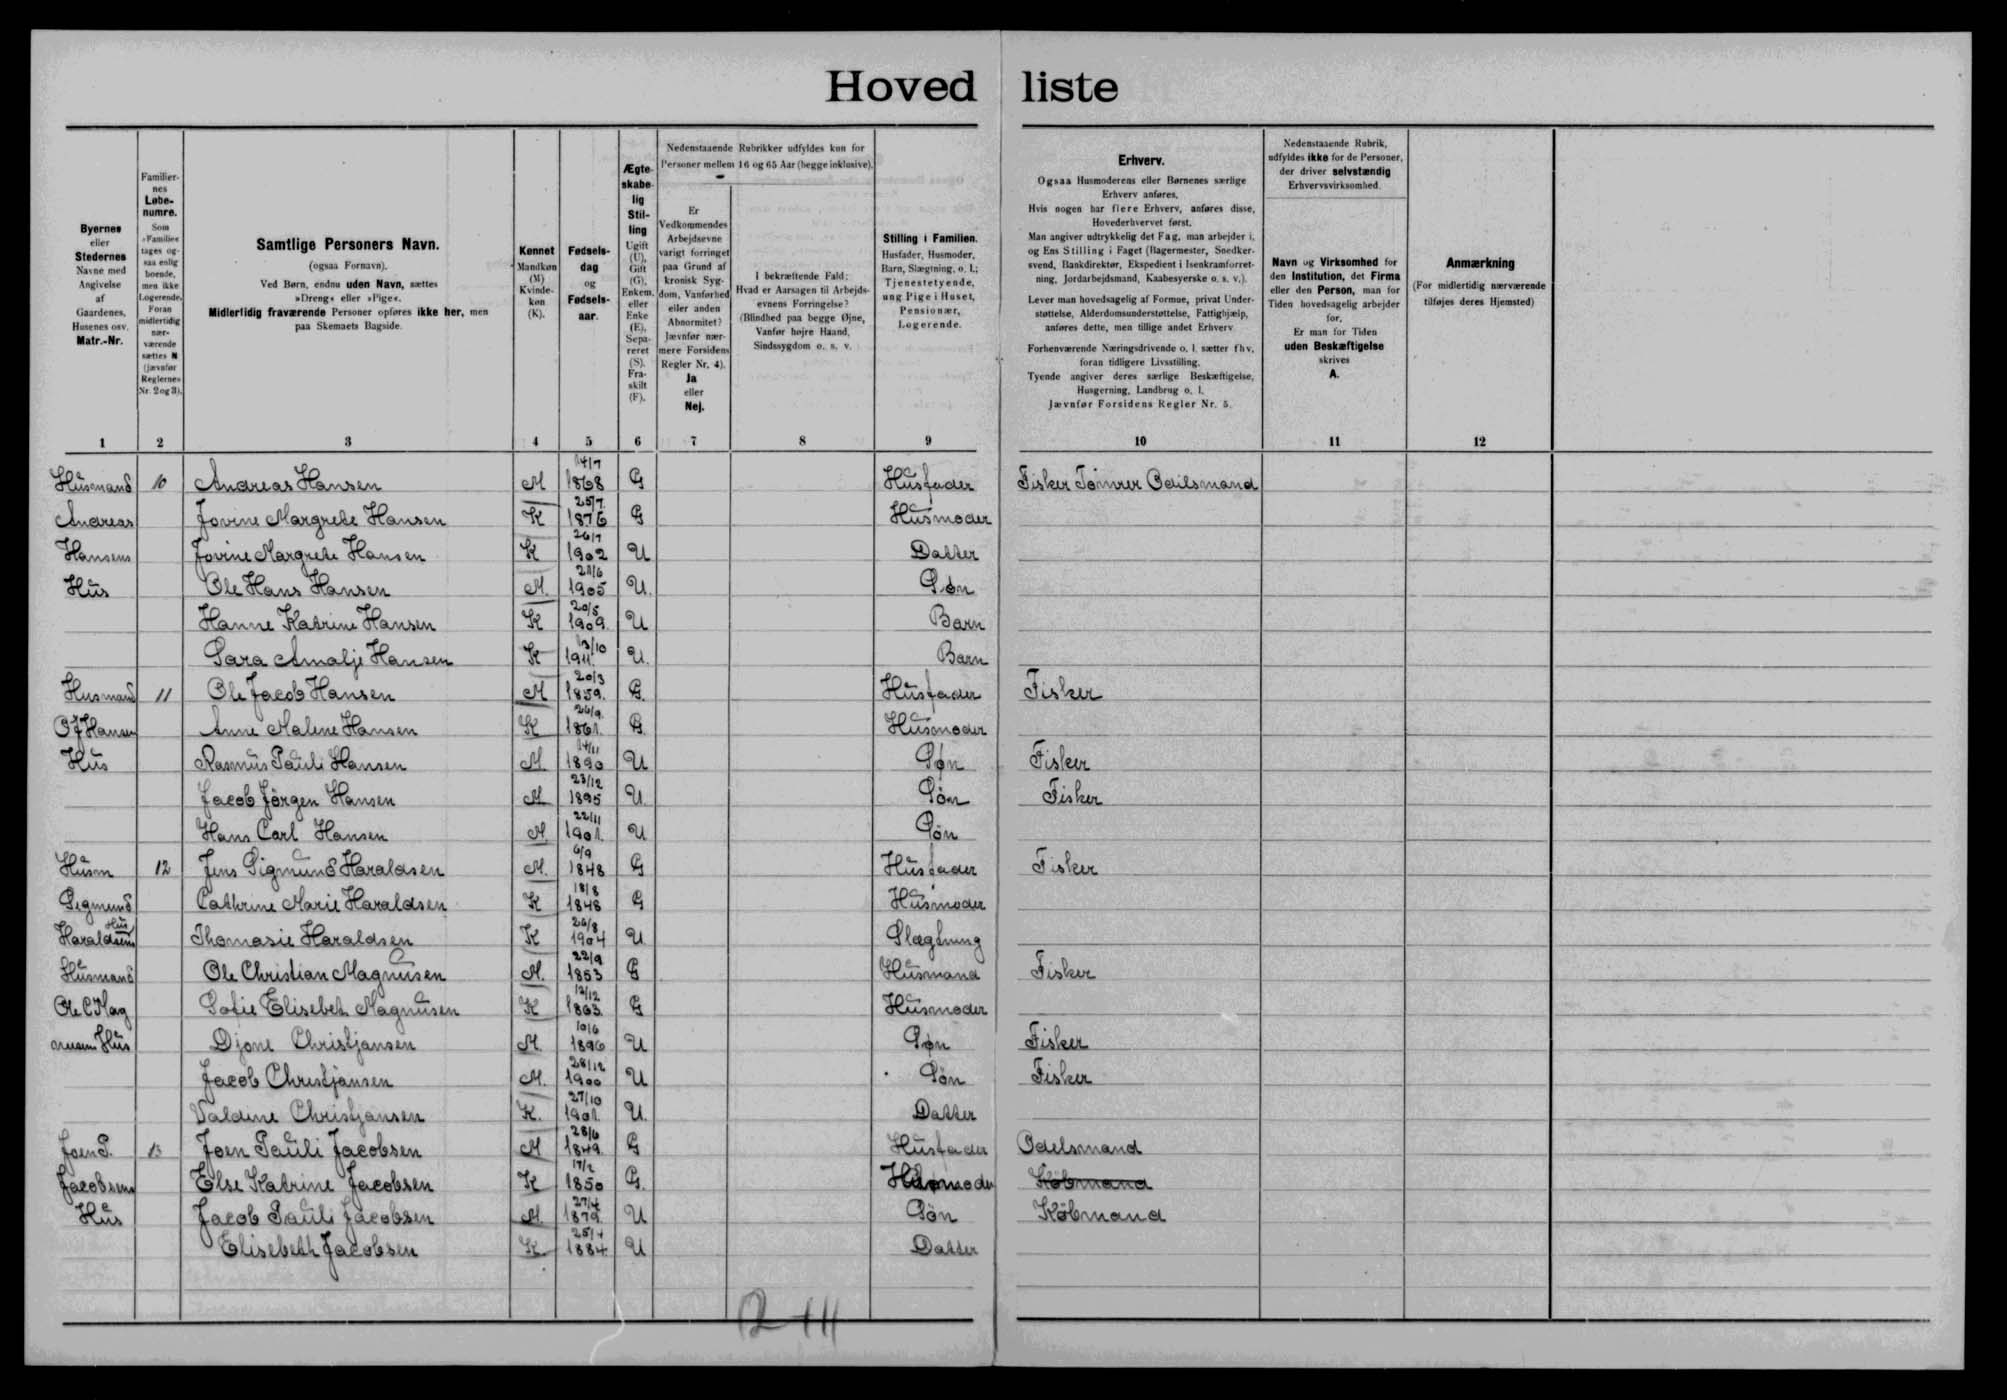 Hovedliste
Byernes eller Stedernes Navne med Angivelse af Gaardenes, Husenes osv. Matr.-Nr.
Familiernes Løbenumre. Som »Familie« tages ogsaa enlig boende, men ikke Logerende. Foran midlertidig nærværende sættes N (jævnfør Reglernes Nr. 2 og 3).
Samtlige Personers Navn.
(ogsaa Fornavn).
Ved Børn, endnu uden Navn, sættes »Dreng« eller »Pige«.
Midlertidig fraværende Personer opføres ikke her, men paa Skemaets Bagside.
Kønnet Mandkøn (M) Kvindekøn (K).
Fødselsdag og Fødselsaar.
Ægteskabelig Stilling Ugift (U), Gift (G), Enkem. eller Enke (E), Separeret (S). Fraskilt (F).
Nedenstaaende Rubrikker udfyldes kun for Personer mellem 16 og 65 Aar (begge inklusive).
Er Vedkommendes Arbejdsevne varigt forringet paa Grund af kronisk Sygdom, Vanførhed eller anden Abnormitet? Jævnfør nærmere Forsidens Regler Nr. 4). Ja eller Nej.
I bekræftende Fald: Hvad er Aarsagen til Arbejdsevnens Forringelse? (Blindhed paa begge Øjne, Vanfør højre Haand, Sindssygdom o. s. v.)
Stilling i Familien. Husfader, Husmoder, Barn, Slægtning, o. l.; Tjenestetyende, ung Pige i Huset, Pensionær, Logerende.
Erhverv.
Ogsaa Husmoderens eller Børnenes særlige Erhverv anføres.
Hvis nogen har flere Erhverv, anføres disse, Hovederhvervet først.
Man angiver udtrykkelig det Fag, man arbejder i, og Ens Stilling i Faget (Bagermester, Snedkersvend, Bankdirektør, Ekspedient i Isenkramforretning, Jordarbejdsmand, Kaabesyerske o. s. v.).
Lever man hovedsagelig af Formue, privat Understøttelse, Alderdomsunderstøttelse, Fattighjælp, anføres dette, men tillige andet Erhverv
Forhenværende Næringsdrivende o. l. sætter fhv. foran tidligere Livsstilling.
Tyende angiver deres særlige Beskæftigelse, Husgerning, Landbrug o. l.
Jævnfør Forsidens Regler Nr. 5.
Nedenstaaende Rubrik, udfyldes ikke for de Personer, der driver selvstændig Erhvervsvirksomhed.
Navn og Virksomhed for den Institution, det Firma eller den Person, man for Tiden hovedsagelig arbejder for.
Er man for Tiden uden Beskæftigelse skrives A.
Anmærkning
(For midlertidig nærværende tilføjes deres Hjemsted)
1 2 3 4 5 6 7 8 9 10 11 12
Husmand 10 Andreas Hansen M 14/7 1868 G Husfader Fisker Tømrer Odilsmand
Andreas Jovine Margrete Hansen K 25/7 1876 G Husmoder
Hansens Jovine Margrete Hansen K 26/7 1902 U Datter
Hus Ole Hans Hansen M. 21/6 1905 U. Søn
Hanne Katrine Hansen K 20/5 1909 U Barn
Sara Amalje Hansen K 13/10 1911 U. Barn
Husmand 11 Ole Jacob Hansen M 20/3 1859. G. Husfader Fisker
O J Hansen Anne Malene Hansen K 26/9 1861. G. Husmoder
Hus Rasmus Pauli Hansen M 14/11 1890 U Søn Fisker
Jacob Jörgen Hansen M 23/12 1895 U. Søn Fisker
Hans Carl Hansen M 22/11 1901. U Søn
Husm 12 Jens Sigmund Haraldsen M. 6/9 1848 G Husfader Fisker
Sigmund Cathrine Marie Haraldsen K 18/8 1848 G Husmoder
Haraldsens Hus Thomasie Haraldsen K 26/8 1904 U Slægtning
Husmand Ole Christian Magnusen M. 22/9 1853 G Husmand Fisker
Ole C Mag Sofie Elisebeth Magnusen K 12/12 1863. G Husmoder
nusens Hus Djone Christjansen M. 10/6 1896 U Søn Fisker
Jacob Christjansen M. 28/12 1900 U Søn Fisker
Valdine Christjansen K. 27/10 1901. U. Datter
Joen P. 13 Joen Pauli Jacobsen M 28/6 1849. G Husfader Odelsmand
Jacobsens Else Katrine Jacobsen K 17/2 1850 G. Husmoder Köbmand
Hus Jacob Pauli Jacobsen M. 27/4 1879. U Søn Köbmand
Elisebeth Jacobsen K 25/4 1884 U Datter
12+11